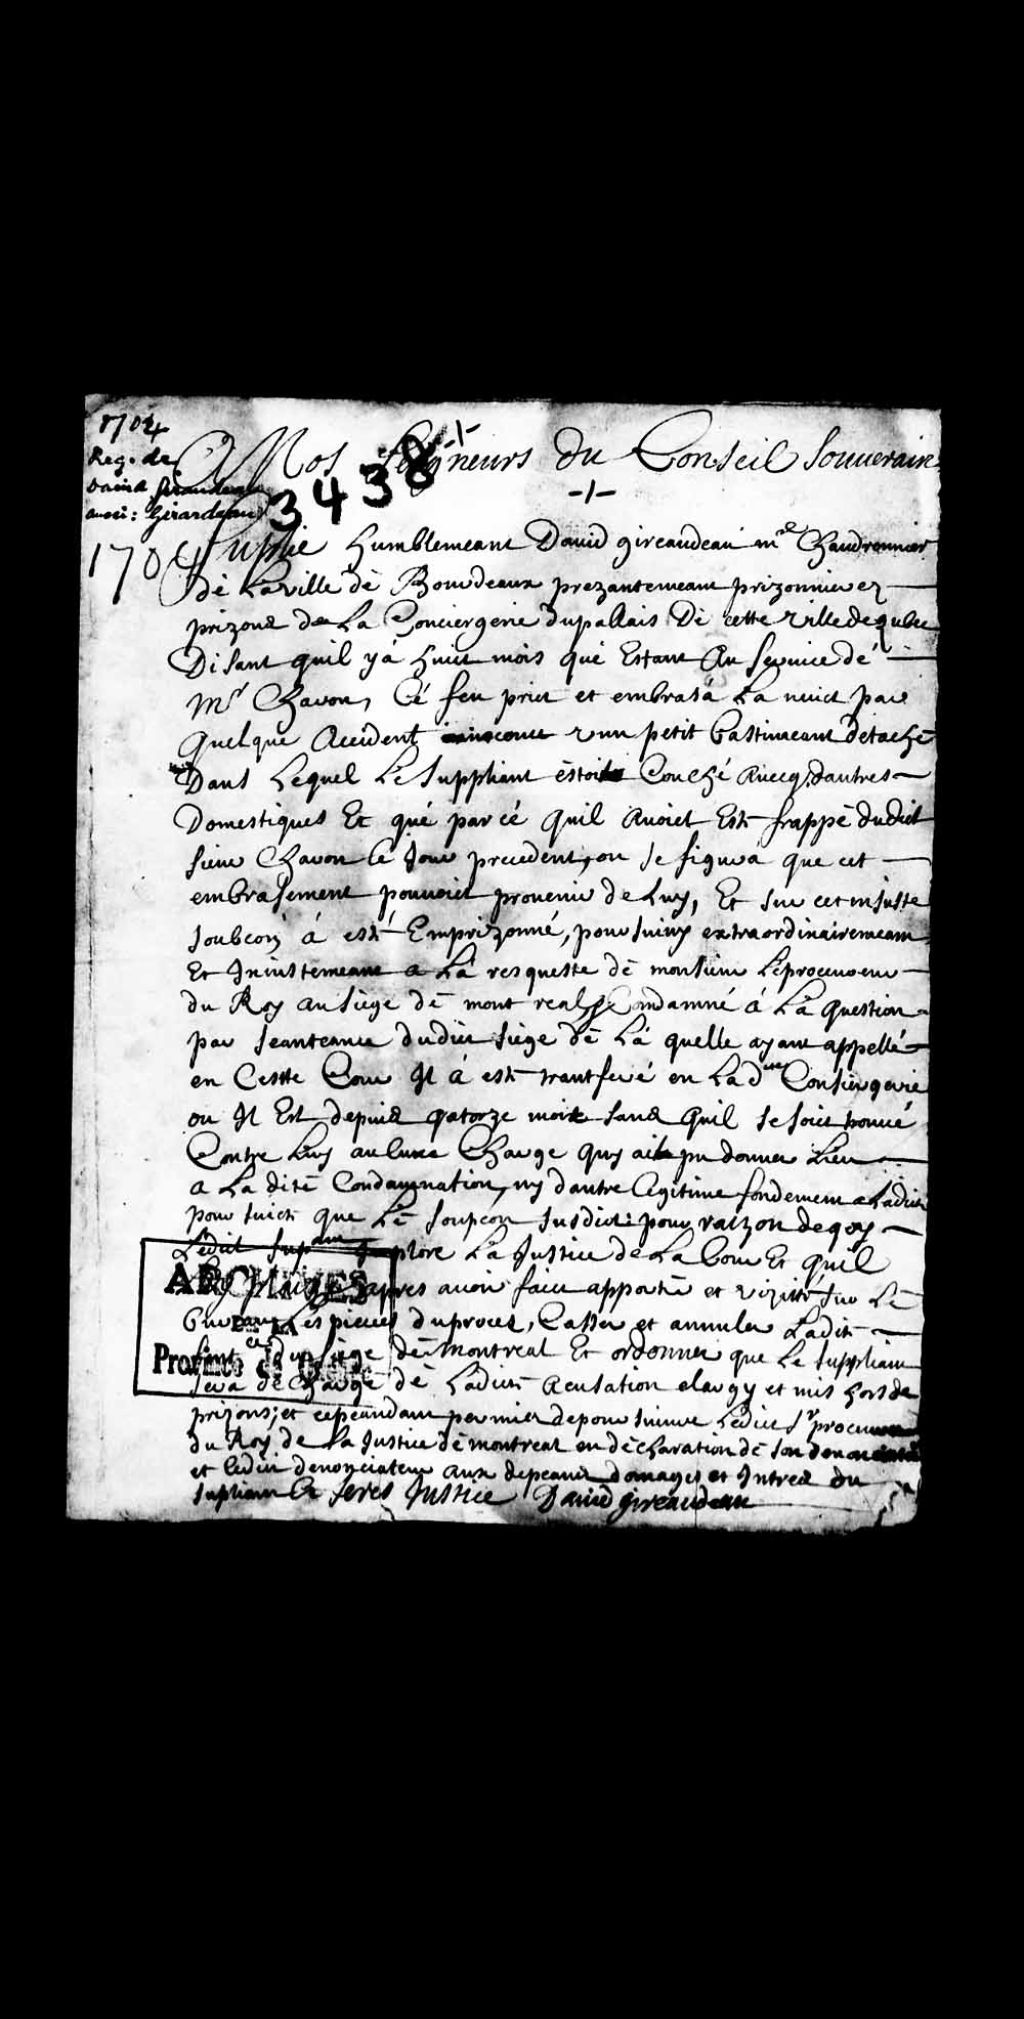 1704
Req. de
David Giraudeau
aussi: Girardeau
3438
1704
A Nos seigneurs du Conseil Souverain
Suplie humblemeant David gireaudeau mre Chaudronnier
Dé La ville dé Bourdeaux prezantemeant prizonnier ez
prizons de La Conciergerie dupallais De cette ville de qubec
Disant quil yá huict mois qué Estant Au service dé
Mr Charon, Cé feu prict et embrasá La nuict par
quelque Accident un petit bastimeant détaché
Dans Lequel Le Suppliant éstoit Couché Avecq dautres
Domestiques Et qué parcé quil Avoict Esté frappé dudict
sieur Charon le Jour precedent, on se figurá que cet
embrasement pouvoict provenir de Luy, Et sur cet injuste
soubçon á esté Emprizonné, poursuivy extraordinairemeant
Et Injustemeant a Lá resqueste dé monsieur Léprocureur
du Roy au siege dé mont real, Condamné á Lá question
par seanteance dudict siege dé Lá quelle ayant appellé
en Cestte Cour Il á esté transferé en Lad.te Consiergerie
ou Il Est depuis qatorze mois sans quil se soict trouvé
Contre Luy aulcune Charge quy ait pu donner Lieu
a La dité Condamnation, ny dautre legitime fondement a Ladicte
poursuicte que Lé soupçon susdict: pour raizon dequoy
Lédict supant Implore Lá Justice de La Cour Et quil
Luy plaize apres avoir faict apporté et vizitté sur Lé
Bureau Les pieces duproces, Casser et annuler Ladicte
sentce du siege dé Montreal Et ordonner que Le suppliant
sera déchargé dé Ladicte Acusation elargy et mis hors de
prizons; et cependant permier depoursuivre Ledict Sr procureur
du Roy de La Justice dé montreal en déclaration dé son
et ledict denonciateur aux depeans domages et Intres du
supliant Et ferés Justice David gireaudeau
ARCHIVES
DE LA
Province de Québec